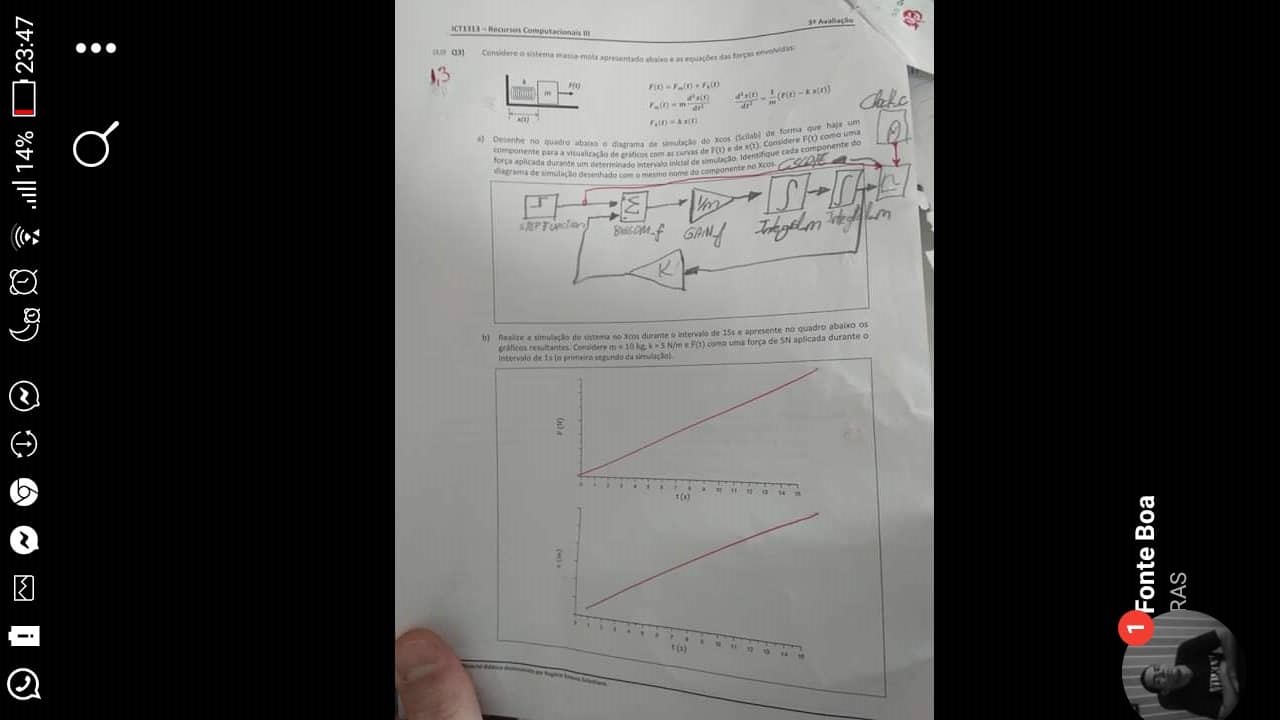 23:47
14%
ICT1313 – Recursos Computacionais III
3ª Avaliação
(3,0) Q3) Considere o sistema massa-mola apresentado abaixo e as equações das forças envolvidas:
1,3
k
m
F(t)
x(t)
F(t) = Fm(t) + Fk(t)
Fm(t) = m d²x(t)/dt²
d²x(t)/dt² = 1/m (F(t) − k x(t))
Fk(t) = k x(t)
a) Desenhe no quadro abaixo o diagrama de simulação do Xcos (Scilab) de forma que haja um
componente para a visualização de gráficos com as curvas de F(t) e de x(t). Considere F(t) como uma
força aplicada durante um determinado intervalo inicial de simulação. Identifique cada componente do
diagrama de simulação desenhado com o mesmo nome do componente no Xcos.
Clock_c
CSCOPE
Σ
1/m
∫
∫
STEP Function
BIGSOM_f
GAIN_f
Integral_m
Integral_m
K
b) Realize a simulação do sistema no Xcos durante o intervalo de 15s e apresente no quadro abaixo os
gráficos resultantes. Considere m = 10 kg, k = 5 N/m e F(t) como uma força de 5N aplicada durante o
intervalo de 1s (o primeiro segundo da simulação).
F (N)
0 1 2 3 4 5 6 7 8 9 10 11 12 13 14 15
t (s)
x (m)
0 1 2 3 4 5 6 7 8 9 10 11 12 13 14 15
t (s)
Material didático desenvolvido por
1
Fonte Boa
RAS